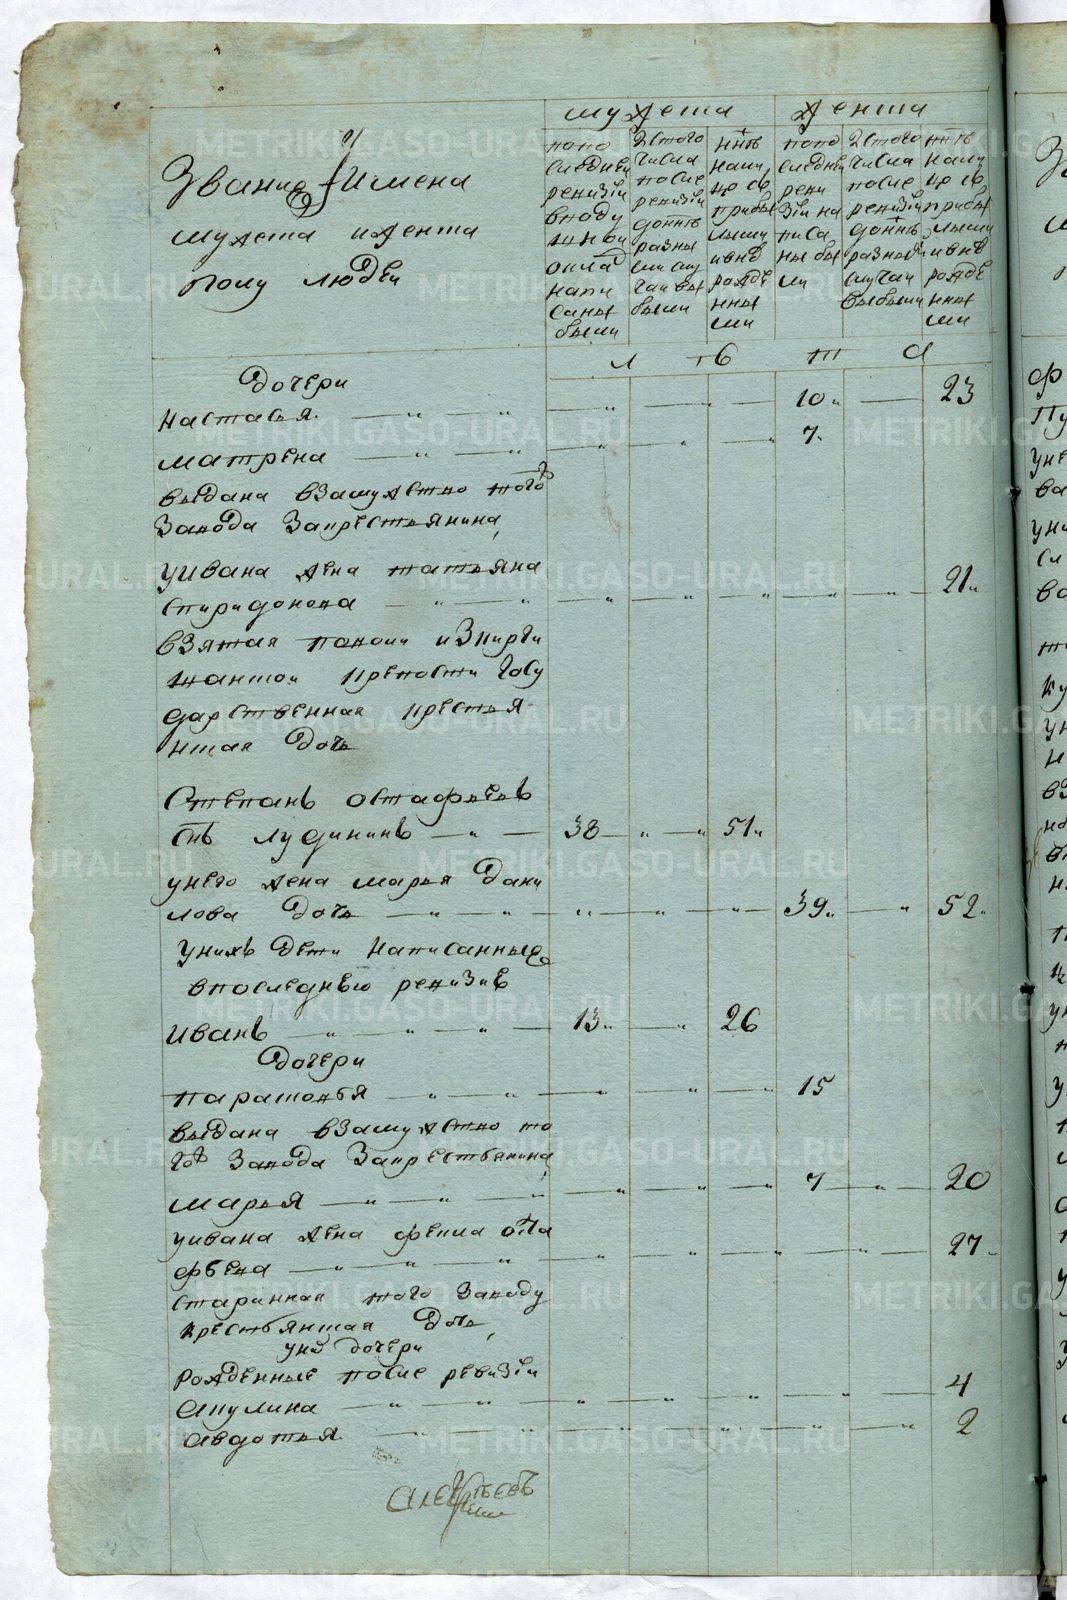 мужеска
женска
Звание И Имена
мужеска и женска
полу людей
по по
следней
ревизии
в поду
шной
окла
напи
саны
были
Ис того
числа
после
ревизии
до нне
разны
ми слу
чаи вы
были
нне
нали
це со
прибы
лыми
и внов
рожде
нны
ми
по по
следней
реви
зии на
писа
ны бы
ли
Ис того
числа
после
ревизии
до нне
разными
случаи
выбыли
нне
нали
це со
прибы
лыми
и внов
рожде
нны
ми
л ѣ т а
Дочери
Настасья 10 23
Матрена 7
выдана взамужство того
завода за крестьянина
у Ивана жена татьяна
Спиридонова 21
взятая покои ис Кирги
шанской крепости госу
дарственная крестья
нская дочь
Степанъ остафьевъ
снъ лудининъ 38 51
у него жена марья Дани
лова Дочь 39 52
у нихъ дети написанные
в последнюю ревизию
Иванъ 13 26
Дочери
парасковья 15
выдана взамужство то
гожъ завода за крестьянина
марья 7 20
у ивана жена фекла ста
фьева 27
старинная того заводу
крестьянская дочь
у них дочери
рожденные после ревизии
Акулина 4
Авдотья 2
Алексеевъ
METRIKI.GASO-URAL.RU